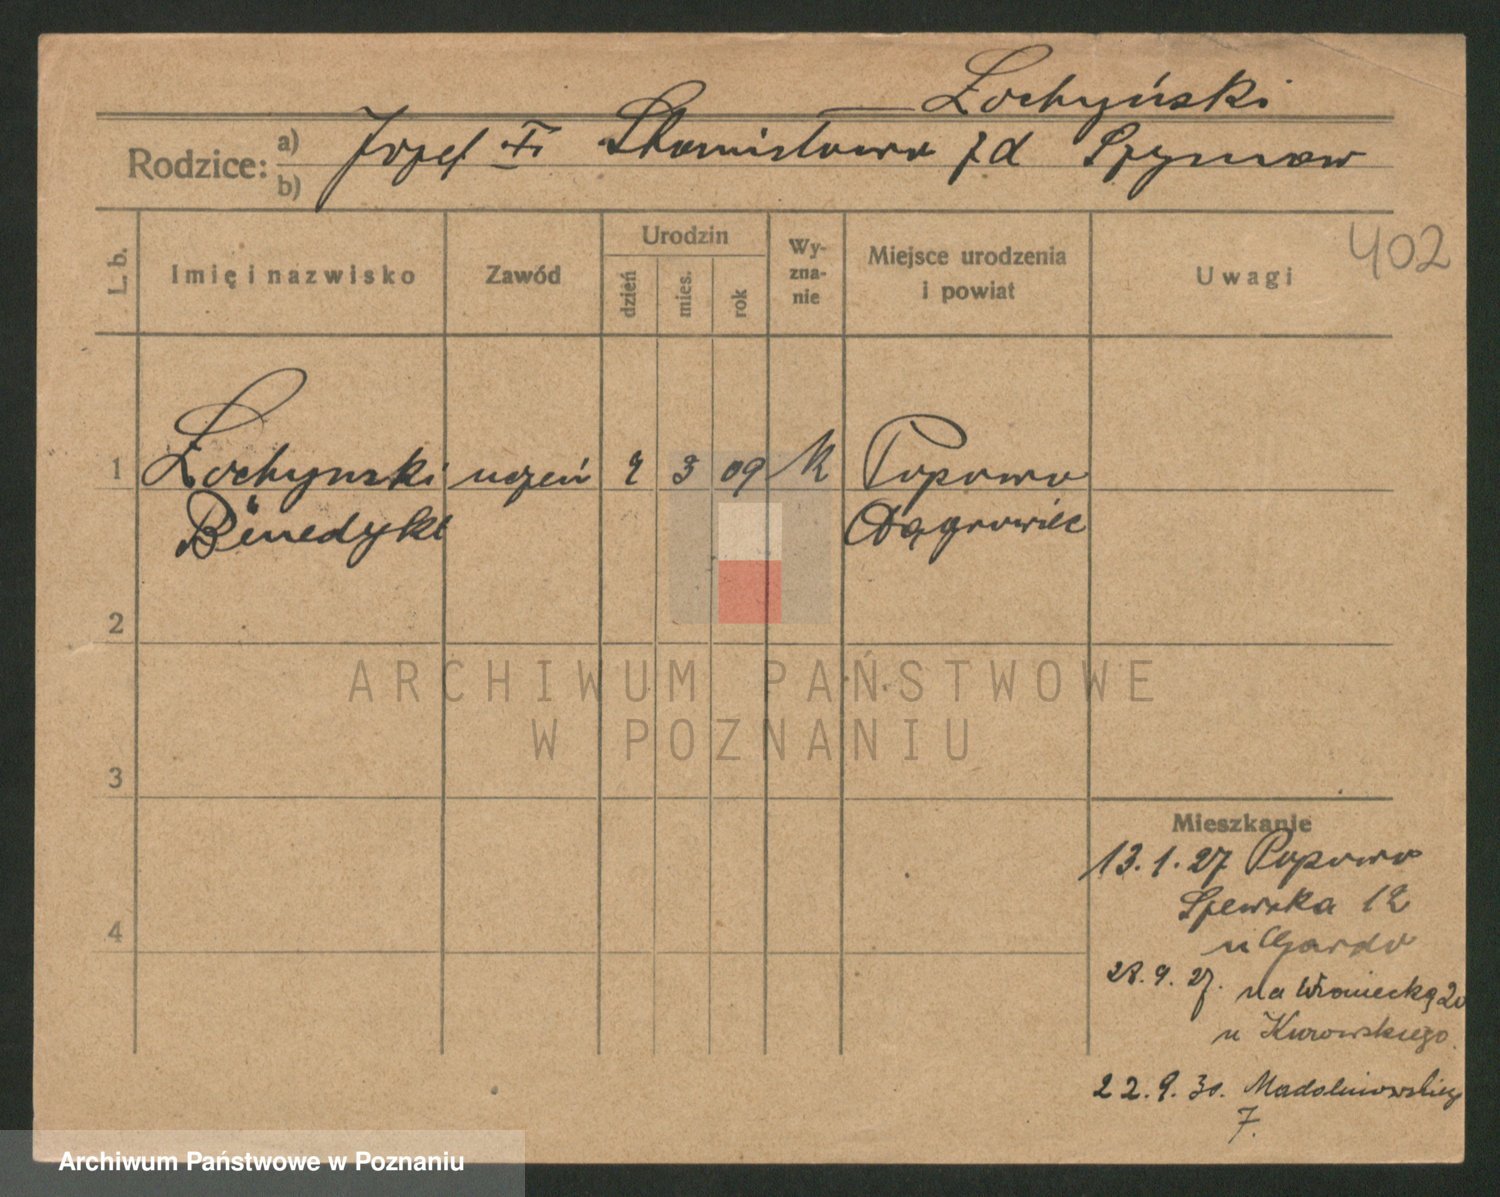 Żochyński
Rodzice: a) Józef + Stanisława z d Szyman
b)
L. b.
Imię i nazwisko
Zawód
Urodzin
dzień
mies.
rok
Wy-
zna-
nie
Miejsce urodzenia
i powiat
Uwagi
402
1 Żochynski uczeń 2 3 09 K Popowo
Benedykt Wągrowiec
2
3
4
Mieszkanie
13.1.27 Popowo
Szewska 12
u
28.9.27. na Wroniecką 20
u Kurowskiego.
22.9.30. Madalinowskiego
7.
ARCHIWUM PAŃSTWOWE
W POZNANIU
Archiwum Państwowe w Poznaniu